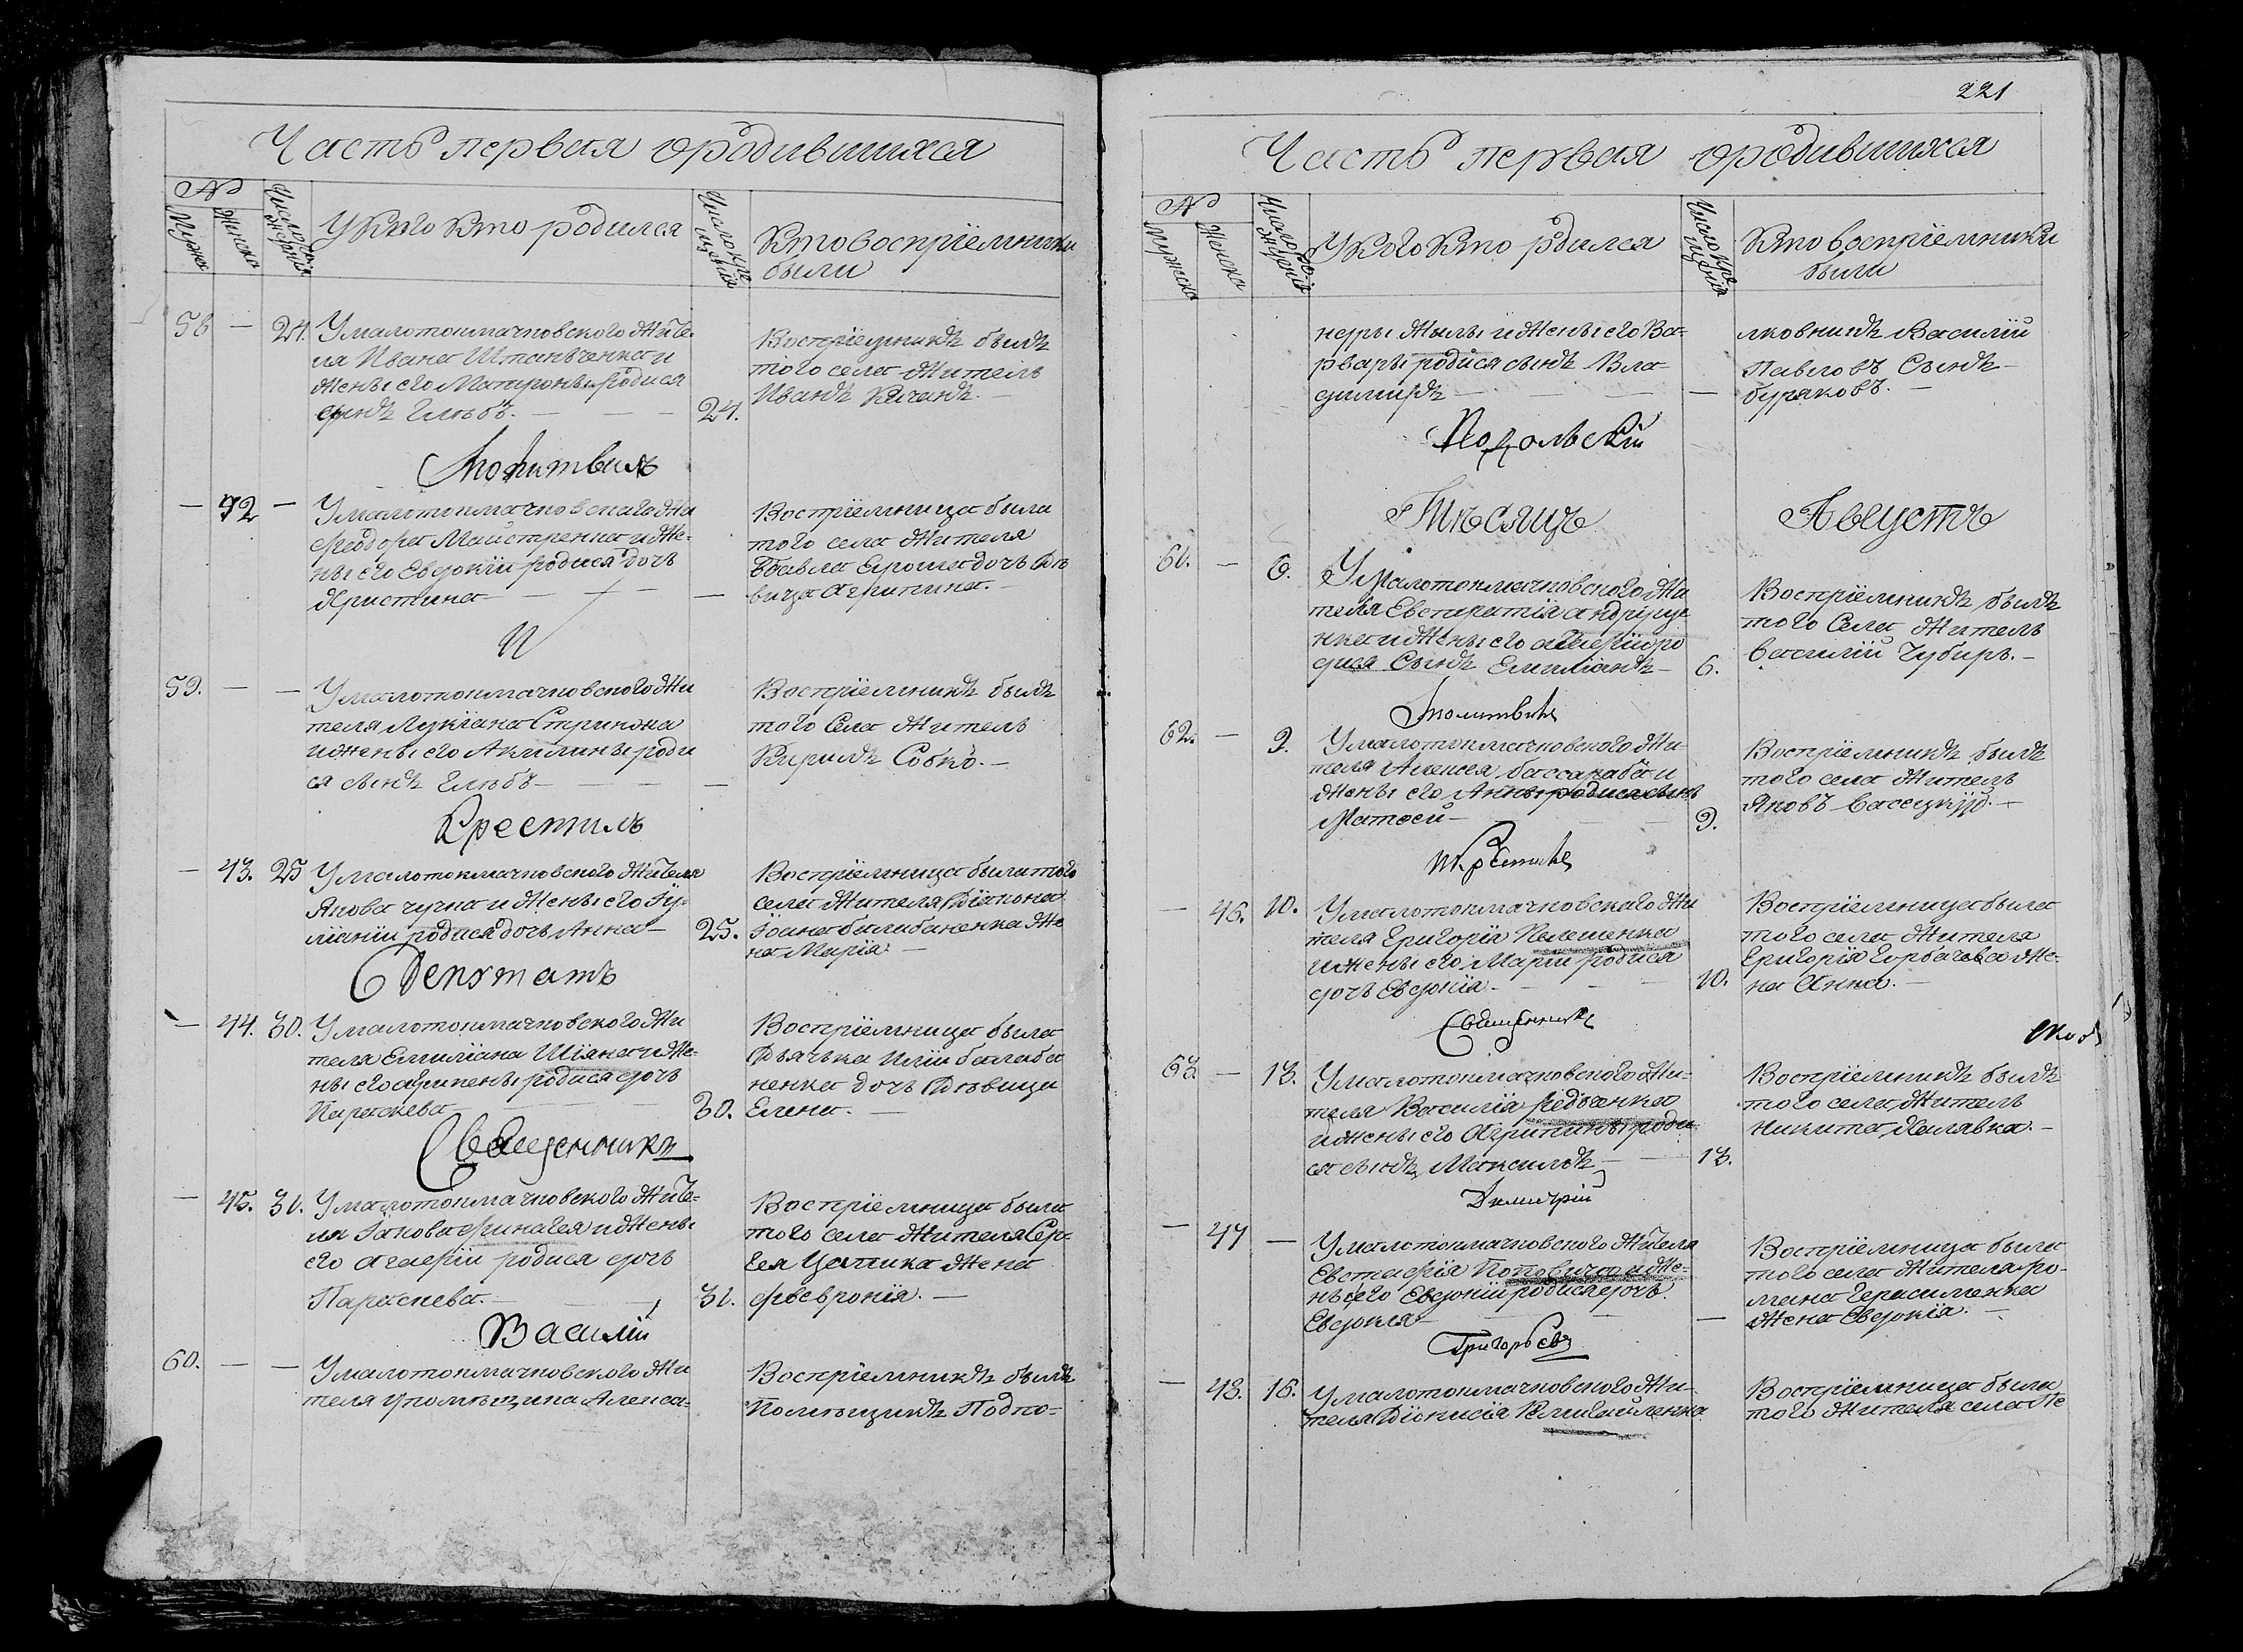 Часть первая ородившихся
№
Мужеска
Женска
Число рожденія
У Кого Кто родился
Число крещенія
Кто воспріемники
были
58 — 24. У малотокмачковского жите-
ля Ивана Штаньченка и
жены его Матроны родися
сынъ Глѣбъ. — — — 24.
Воспріемникъ былъ
того села житель
Иванъ —
Молитвилъ
— 42 — У малотокмачковскаго жи
Феодора Майстренка и же-
ны его Евдокіи родися дочь
Христина — — —
Воспріемница была
того села жителя
Павла Ероша дочь дѣ
вица Агрипина. —
И
59. — — У малотокмачковского жи
теля Лукіана Стрикона
и жены его Акилины роди
ся сынъ Глѣбъ — — — —
Воспріемникъ былъ
того Села житель
Кирилъ Собко. —
Крестилъ
— 43. 25 У малотокмачковского жителя
Якова чучка и жены его Іу-
ліаніи родися дочь Анна — 25.
Воспріемница была того
села жителя Діакона
Іоана билибаненка же
на Марія —
Депутатъ
— 44. 30. У малотокмачковского жи
теля Емиліана Шіяна и же-
ны его Агрипены родися дочь
Параскева — — 30.
Воспріемница была
Дьячька Иліи балаба
ненка дочь дѣвица
Елена. —
Священникъ
— 45. 31. У малотокмачковского жите-
ля Іакова Финагея и жены
его Агафіи родися дочь
Параскева. — — 31.
Воспріемница была
того села жителя Сер-
гея Цапика жена
февронія. —
Василій
60. — — У малотокмачковского жи
теля у помѣщика Алекса-
Воспріемникъ былъ
Помѣщикъ Подпо-
221
Часть первая ородившихся
№
Мужеска
Женска
Число рожденія
У Кого Кто родился
Число крещенія
Кто воспріемники
были
ндры Жилы и жены его Ва-
рвары родися сынъ Вла-
димиръ — — — —
лковникъ Василій
Павловъ Сынъ
буряковъ. —
Подольскій
Мѣсяцъ Августъ
61. — 6. У малотокмачковского жи
теля Евстратія андруще
нка и жены его ро
дися Сынъ Емиліанъ — 6.
Воспріемникъ былъ
того Села житель
василій Чубиръ. —
Молитвилъ
62. — 9. У малотокмачковского жи-
теля Алексея бассараба и
жены его Анны родися сынъ
Матфеи — — — 9.
Воспріемникъ былъ
того села житель
Яковъ —
и Крестилъ
— 46. 10. У малотокмачковскаго жи
теля Григорія Пелешенка
и жены его Маріи родися
дочь Евдокія. — — — 10.
Воспріемница была
того села жителя
Григорія Горбачева же-
на Анна. —
Священникъ
63. — 13. У малотокмачковского жи-
теля Василія федченка
и жены его Агрипины роди
ся сынъ Максимъ — — 13.
Воспріемникъ былъ
того села житель
никита Халявка. —
Димитрій
— 47 — У малотокмачковского жителя
Евстафія Поповича и же-
ны его Евдокіи родися дочь
Евдокія — — — —
Воспріемница была
того села жителя ро-
мана Герасименка
жена Евдокія. —
Григорьевъ
— 48. 16. У малотокмачковского жи-
теля Діонисія
Воспріемница была
того жителя села Пе